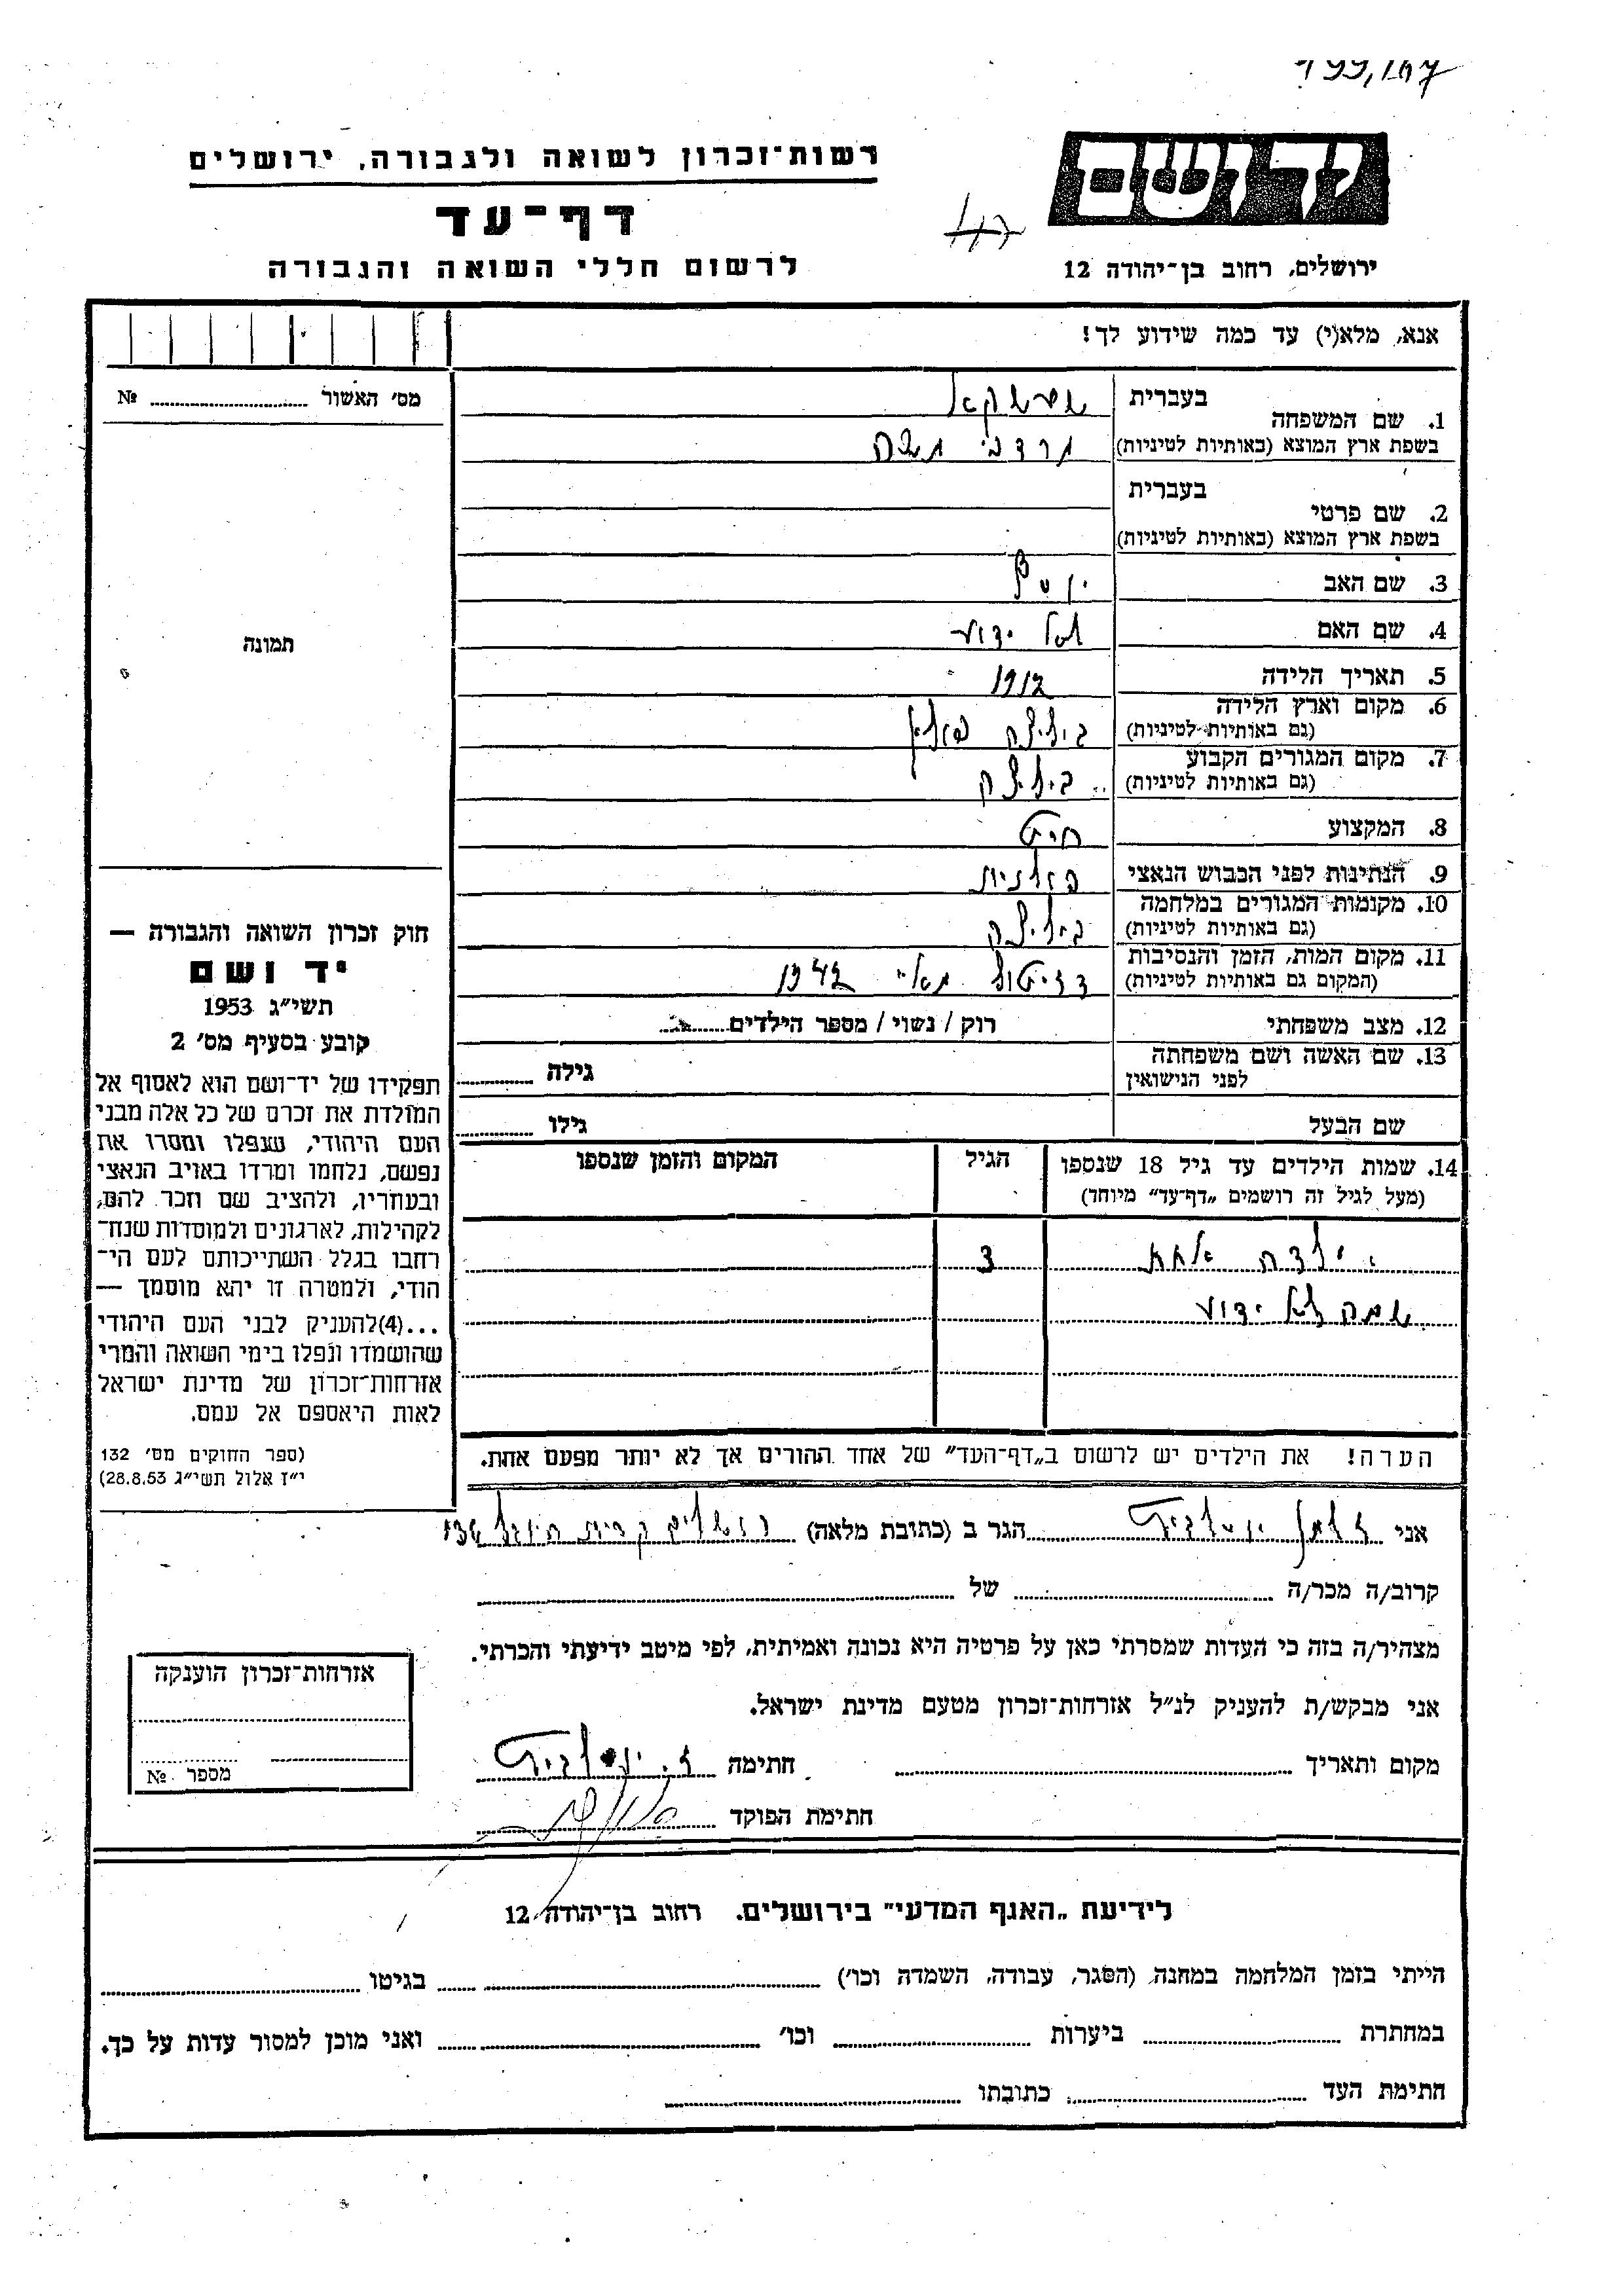 יד ושם
רשות־זכרון לשואה ולגבורה, ירושלים
דף־עד
לרשום חללי השואה והגבורה
ירושלים, רחוב בן־יהודה 12
אנא, מלא(י) עד כמה שידוע לך!
מס׳ האשור № 
1. שם המשפחה בעברית
בשפת ארץ המוצא (באותיות לטיניות) מרדכי משה
2. שם פרטי בעברית
בשפת ארץ המוצא (באותיות לטיניות)
3. שם האב יוסף
4. שם האם לא ידוע
תמונה
5. תאריך הלידה 1912
6. מקום וארץ הלידה ביליצה פולין
(גם באותיות לטיניות)
7. מקום המגורים הקבוע ביליצה
(גם באותיות לטיניות)
8. המקצוע חייט
9. הנתינות לפני הכבוש הנאצי פולנית
10. מקומות המגורים במלחמה ביליצה
(גם באותיות לטיניות)
11. מקום המות, הזמן והנסיבות מאי 1942
(המקום גם באותיות לטיניות)
12. מצב משפחתי רוק / נשוי / מספר הילדים
13. שם האשה ושם משפחתה גילה
לפני הנישואין
שם הבעל גילו
חוק זכרון השואה והגבורה —
יד ושם
תשי״ג 1953
קובע בסעיף מס׳ 2
תפקידו של יד־ושם הוא לאסוף אל
המולדת את זכרם של כל אלה מבני
העם היהודי, שנפלו ומסרו את
נפשם, נלחמו ומרדו באויב הנאצי
ובעוזריו, ולהציב שם וזכר להם,
לקהילות, לארגונים ולמוסדות שנח־
רחבו בגלל השתייכותם לעם הי־
הודי, ולמטרה זו יהא מוסמך —
...(4)להעניק לבני העם היהודי
שהושמדו ונפלו בימי השואה והמרי
אזרחות־זכרון של מדינת ישראל
לאות היאספם אל עמם.
(ספר החוקים מס׳ 132
י״ז אלול תשי״ג 28.8.53)
14. שמות הילדים עד גיל 18 שנספו הגיל המקום והזמן שנספו
(מעל לגיל זה רושמים „דף־עד״ מיוחד)
ילדה אחת 3
שמה לא ידוע
הערה! את הילדים יש לרשום ב„דף־העד״ של אחד ההורים אך לא יותר מפעם אחת.
אני זלמן יוסלביץ הגר ב (כתובת מלאה) קרית היובל
קרוב/ה מכר/ה של
מצהיר/ה בזה כי העדות שמסרתי כאן על פרטיה היא נכונה ואמיתית, לפי מיטב ידיעתי והכרתי.
אני מבקש/ת להעניק לנ״ל אזרחות־זכרון מטעם מדינת ישראל.
מקום ותאריך חתימה ז. יוסלביץ
חתימת הפוקד
אזרחות־זכרון הוענקה
מספר №
לידיעת „האגף המדעי״ בירושלים. רחוב בן־יהודה 12
הייתי בזמן המלחמה במחנה (הסגר, עבודה, השמדה וכו׳) בגיטו
במחתרת ביערות וכו׳ ואני מוכן למסור עדות על כך.
חתימת העד כתובתו